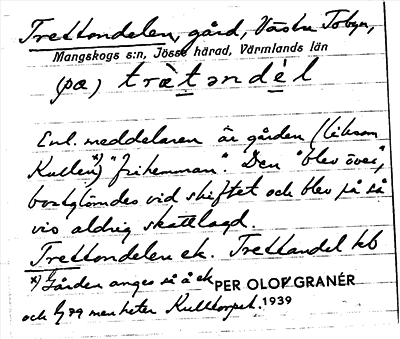 Trettondelen, gård, Västra Tobyn,
Mangskogs s:n, Jösse härad, Värmlands län
(pœ) trɛ̀tɘndèl
Enl. meddelaren är gården (liksom
Kullen*) "frihemman". Den "blev över",
bortglömdes vid skiftet och blev på så
vis aldrig skattlagd.
Trettondelen ek. Trettondel kb
*) Gården anges så å ek
PER OLOF GRANÉR
och men heter Kulltorpet.
1939